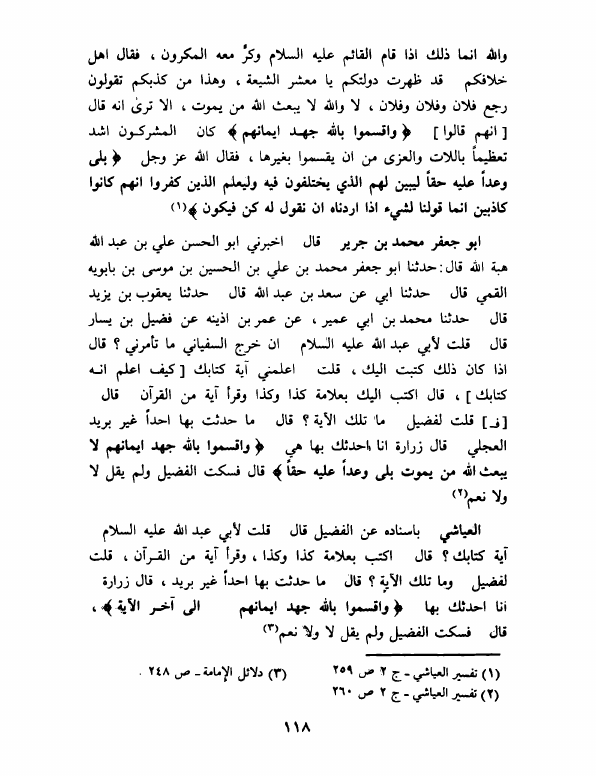 والله انما ذلك اذا قام القائم عليه السلام وكرَّ معه المكرون ، فقال اهل
خلافكم قد ظهرت دولتكم يا معشر الشيعة ، وهذا من كذبكم تقولون
رجع فلان وفلان وفلان ، لا والله لا يبعث الله من يموت ، الا ترىٰ انه قال
[ انهم قالوا ] ﴿ واقسموا بالله جهـد ايمانهم ﴾ كان المشركـون اشد
تعظيماً باللات والعزى من ان يقسموا بغيرها ، فقال الله عز وجل ﴿ بلى
وعداً عليه حقاً ليبين لهم الذي يختلفون فيه وليعلم الذين كفروا انهم كانوا
كاذبين انما قولنا لشيء اذا اردناه ان نقول له كن فيكون ﴾(١)
ابو جعفر محمد بن جرير قال اخبرني ابو الحسن علي بن عبد الله
هبة الله قال : حدثنا ابو جعفر محمد بن علي بن الحسين بن موسى بن بابويه
القمي قال حدثنا ابي عن سعد بن عبد الله قال حدثنا يعقوب بن يزيد
قال حدثنا محمد بن ابي عمير ، عن عمر بن اذينه عن فضيل بن يسار
قال قلت لأبي عبد الله عليه السلام ان خرج السفياني ما تأمرني ؟ قال
اذا كان ذلك كتبت اليك ، قلت اعلمني آية كتابك [ كيف اعلم انـه
كتابك ] ، قال اكتب اليك بعلامة كذا وكذا وقرأ آية من القرآن قال
[ فـ ] قلت لفضيل ما تلك الآية ؟ قال ما حدثت بها احداً غير بريد
العجلي قال زرارة انا احدثك بها هي ﴿ واقسموا بالله جهد ايمانهم لا
يبعث الله من يموت بلى وعداً عليه حقاً ﴾ قال فسكت الفضيل ولم يقل لا
ولا نعم(٢)
العياشي باسناده عن الفضيل قال قلت لأبي عبد الله عليه السلام
آية كتابك ؟ قال اكتب بعلامة كذا وكذا ، وقرأ آية من القـرآن ، قلت
لفضيل وما تلك الآية ؟ قال ما حدثت بها احداً غير بريد ، قال زرارة
انا احدثك بها ﴿ واقسموا بالله جهد ايمانهم الى آخـر الآية ﴾ ،
قال فسكت الفضيل ولم يقل لا ولا نعم(٣)
(١) تفسير العياشي ـ ج ٢ ص ٢٥٩ (٣) دلائل الإمامة ـ ص ٢٤٨ .
(٢) تفسير العياشي ـ ج ٢ ص ٢٦٠
١١٨